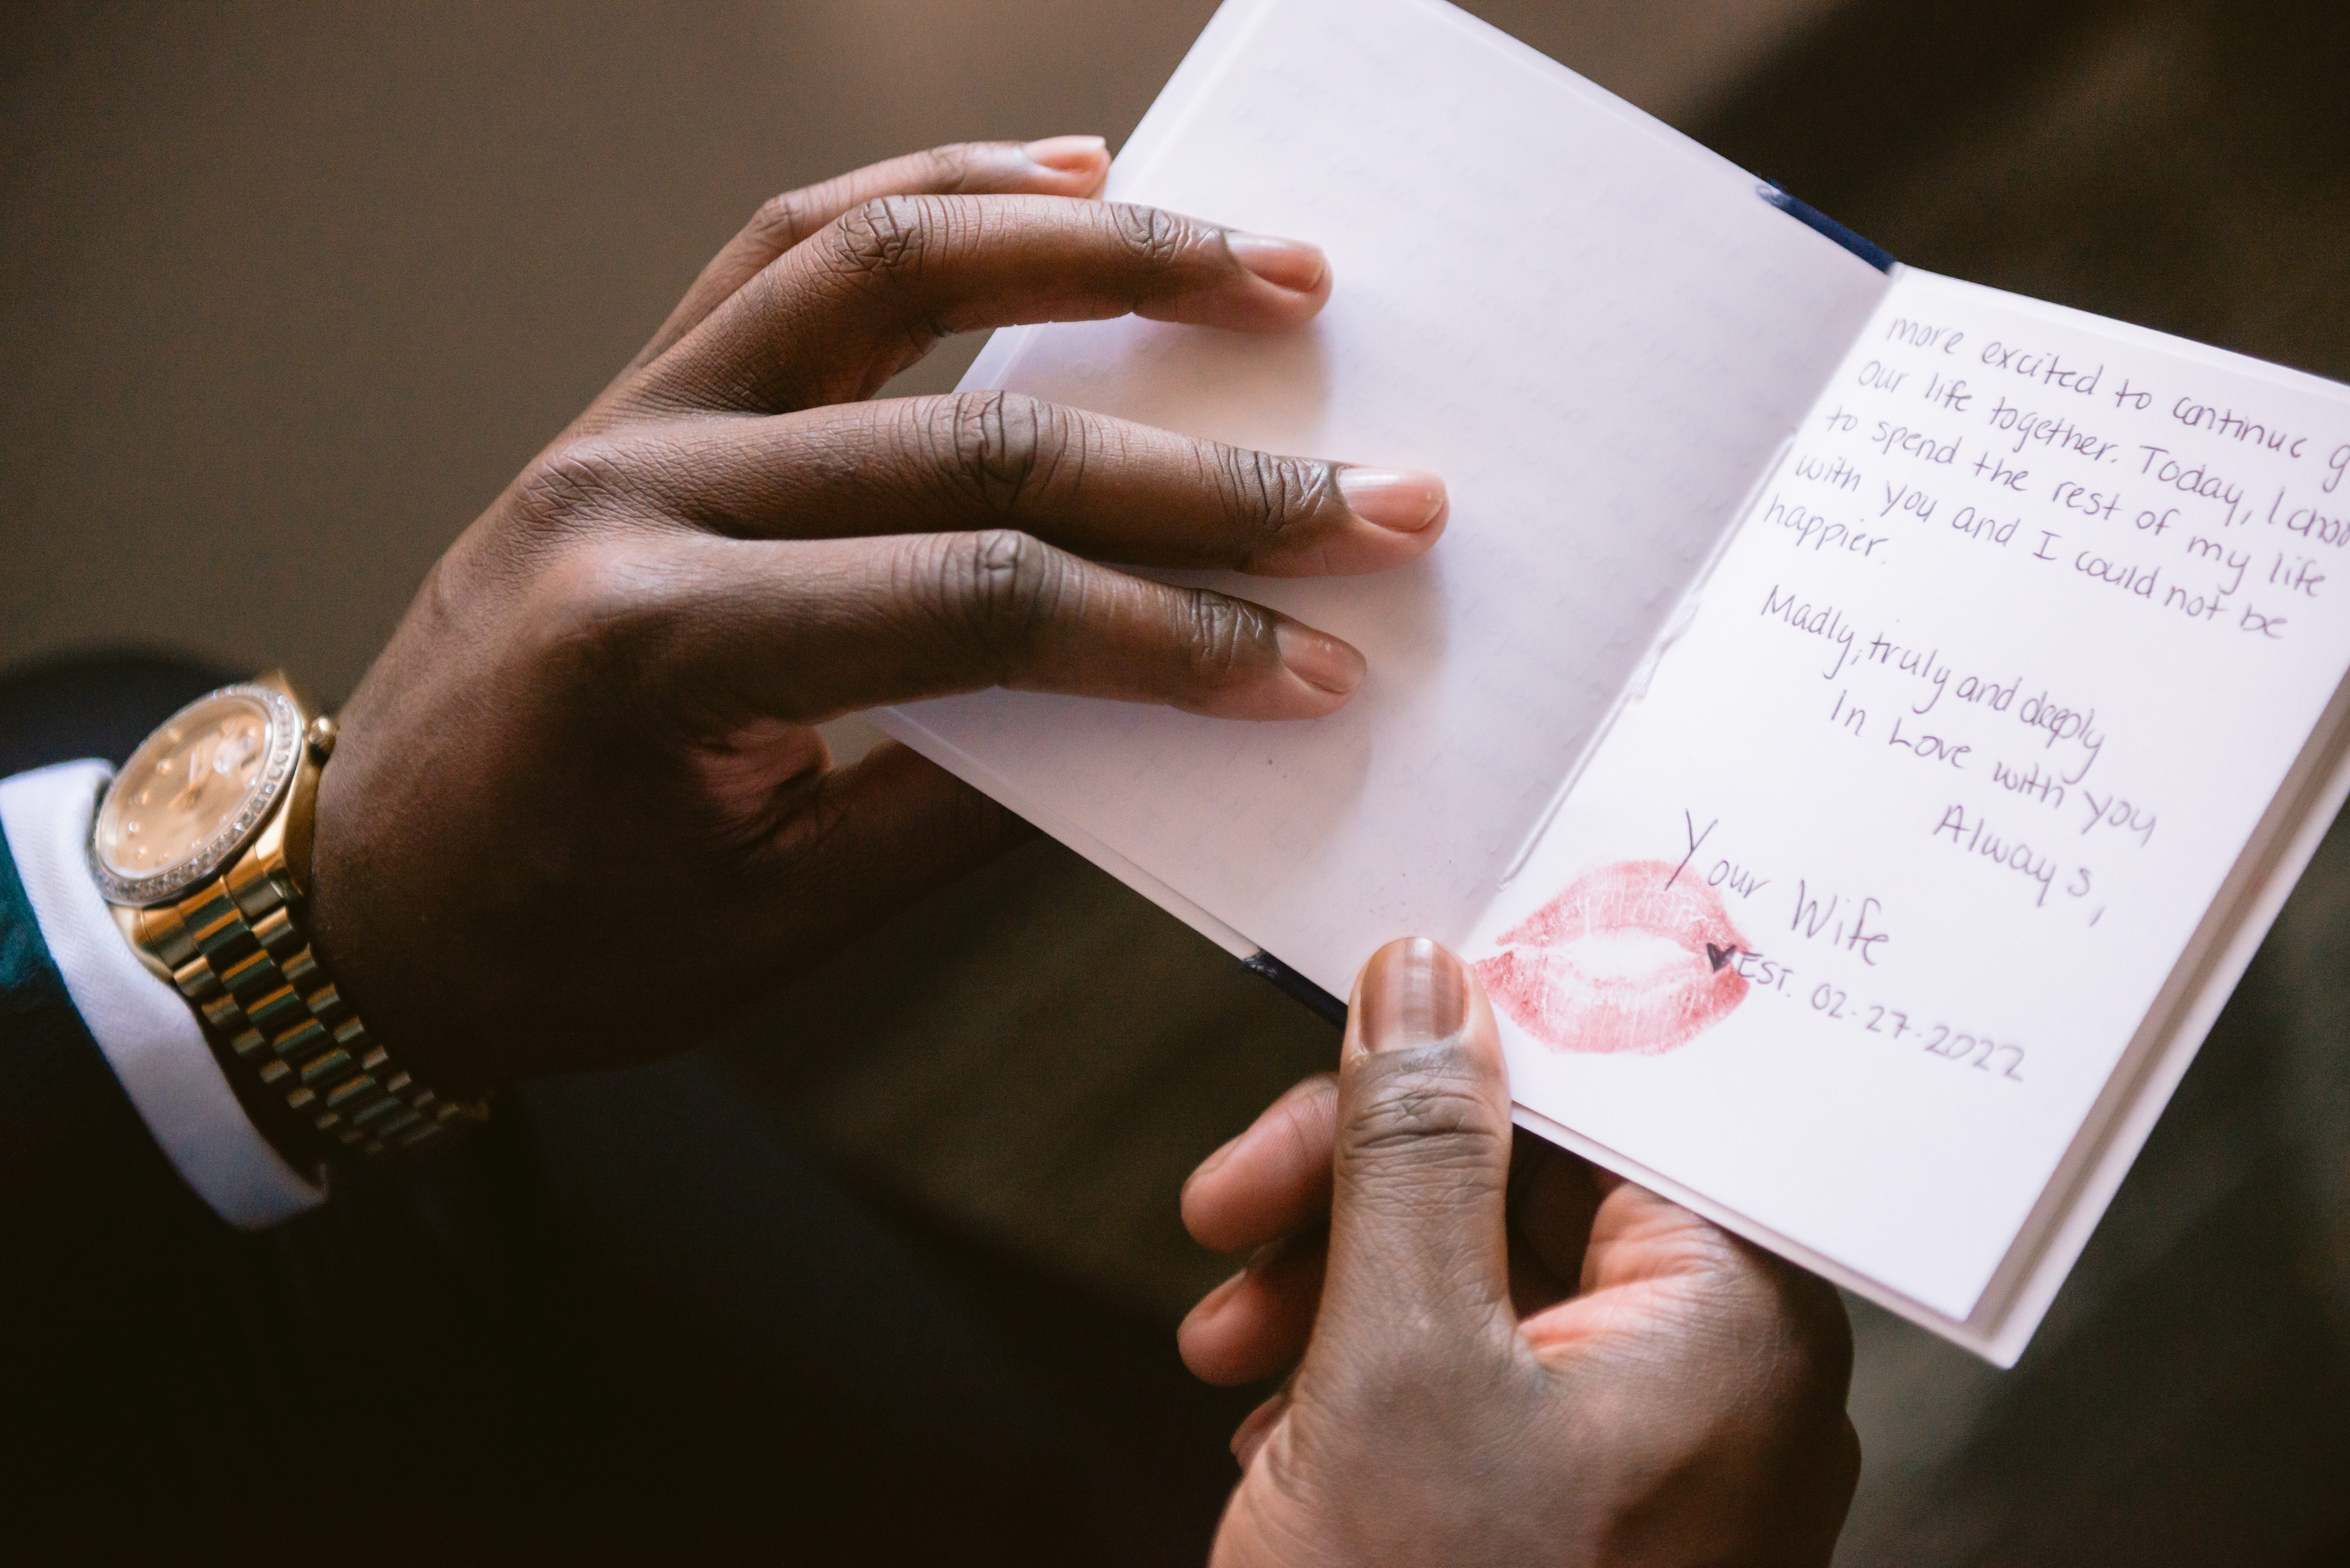 more excited to continue
our life together. Today, I
to spend the rest of my life
with you and I could not be
happier.
Madly, truly and deeply
In Love with you
Always,
Your Wife
♥EST. 02.27.2022